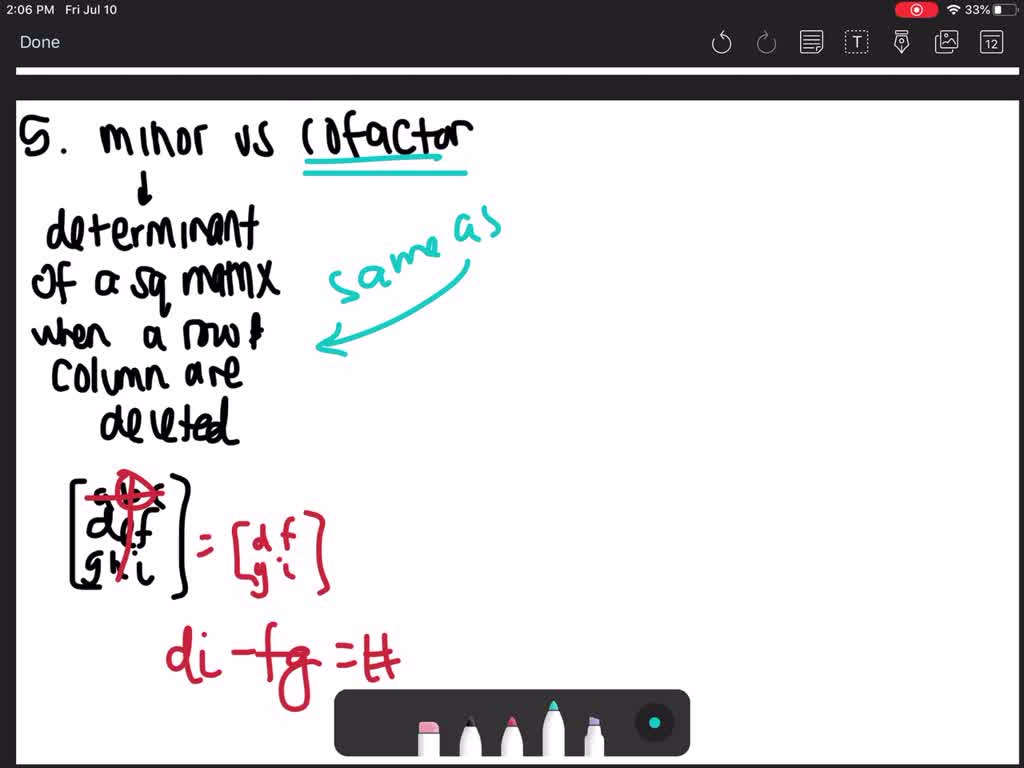 2:06 PM Fri Jul 10
33%
Done
T
12
5. minor vs cofactor
determinant
of a sq matrix
when a row &
column are
deleted
same as
a b c
d e f
g h i
= d f
g i
di - fg = #